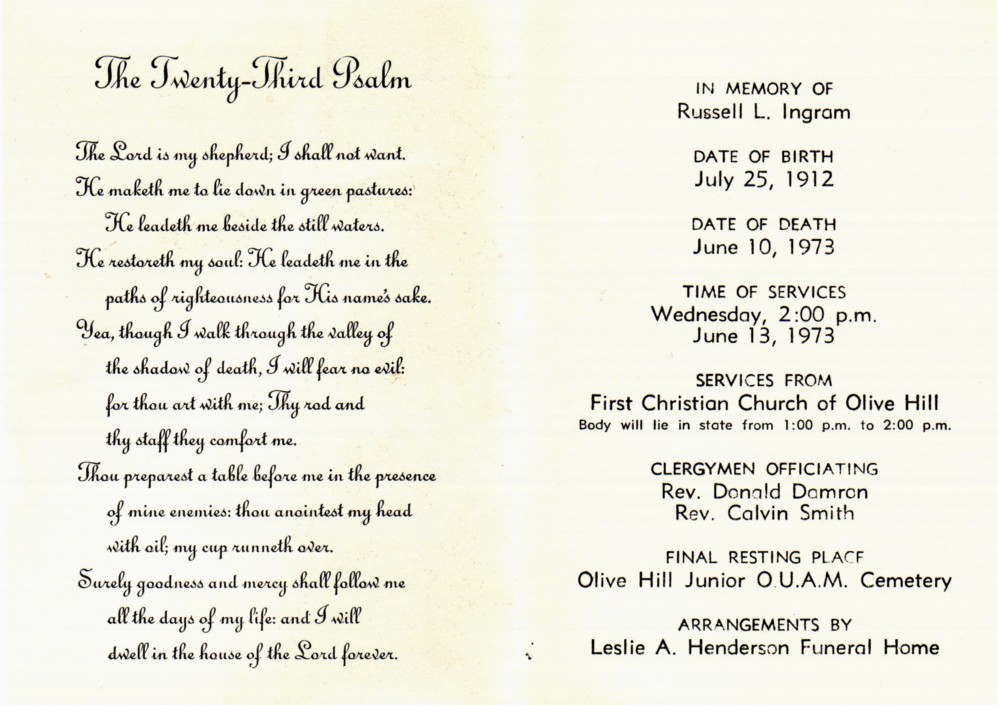 The Twenty-Third Psalm
The Lord is my shepherd; I shall not want.
He maketh me to lie down in green pastures:
He leadeth me beside the still waters.
He restoreth my soul: He leadeth me in the
paths of righteousness for His name's sake.
Yea, though I walk through the valley of
the shadow of death, I will fear no evil:
for thou art with me; Thy rod and
thy staff they comfort me.
Thou preparest a table before me in the presence
of mine enemies: thou anointest my head
with oil; my cup runneth over.
Surely goodness and mercy shall follow me
all the days of my life: and I will
dwell in the house of the Lord forever.
IN MEMORY OF
Russell L. Ingram
DATE OF BIRTH
July 25, 1912
DATE OF DEATH
June 10, 1973
TIME OF SERVICES
Wednesday, 2:00 p.m.
June 13, 1973
SERVICES FROM
First Christian Church of Olive Hill
Body will lie in state from 1:00 p.m. to 2:00 p.m.
CLERGYMEN OFFICIATING
Rev. Donald Damron
Rev. Calvin Smith
FINAL RESTING PLACE
Olive Hill Junior O.U.A.M. Cemetery
ARRANGEMENTS BY
Leslie A. Henderson Funeral Home